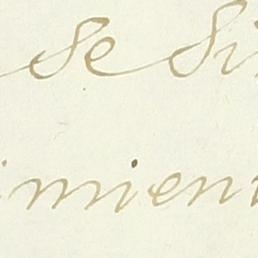 se si
mient